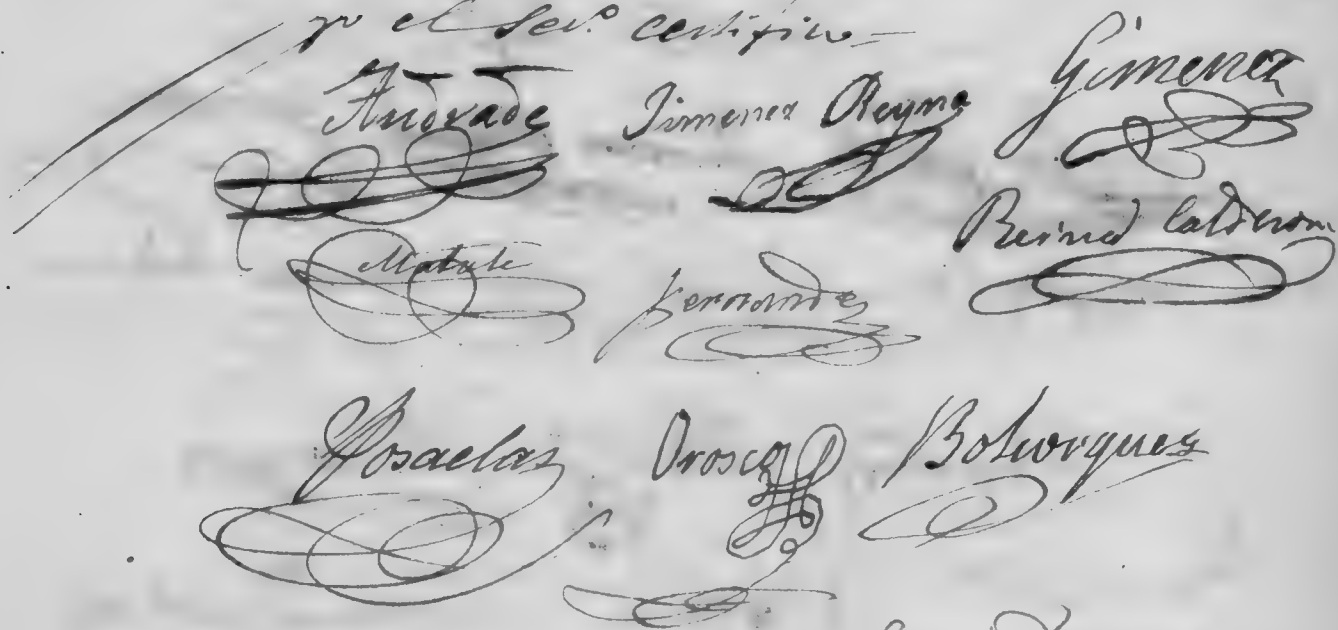 yo el Sec.º certifico
Andrade Jimenez Reyna Gimenez
Reina Calderon
Matute Fernandez
Posadas Orosco Bohorques